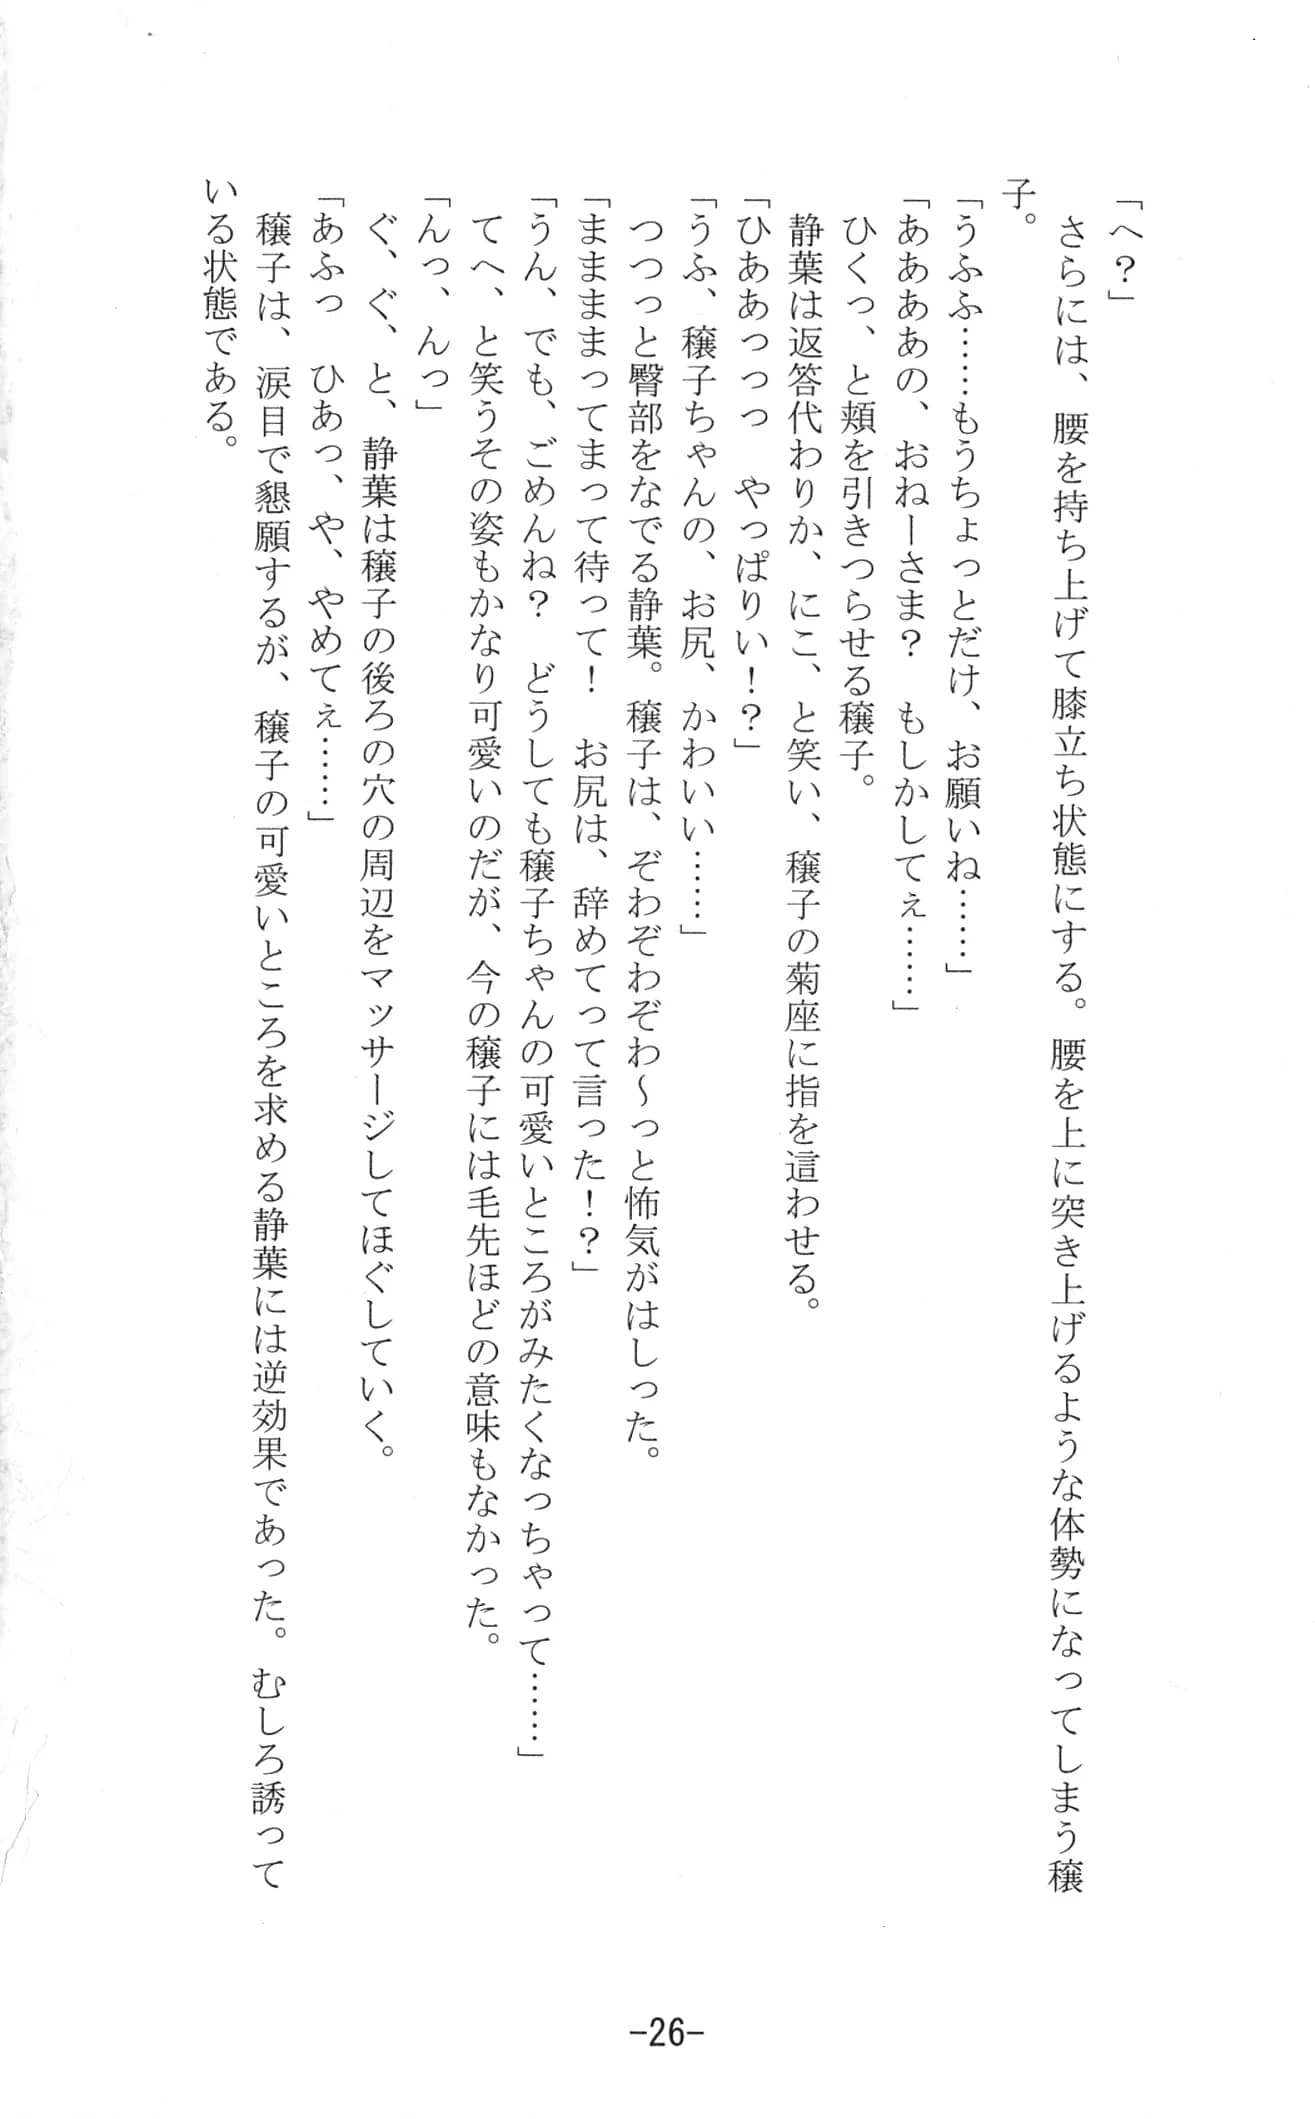 「へ？」
　さらには、腰を持ち上げて膝立ち状態にする。腰を上に突き上げるような体勢になってしまう穣
子。
「うふふ……もうちょっとだけ、お願いね……」
「ああああの、おねーさま？　もしかしてぇ……」
　ひくっ、と頬を引きつらせる穣子。
　静葉は返答代わりか、にこ、と笑い、穣子の菊座に指を這わせる。
「ひああっっっ　やっぱりい！？」
「うふ、穣子ちゃんの、お尻、かわいい……」
　つつつっと臀部をなでる静葉。穣子は、ぞわぞわぞわ～っと怖気がはしった。
「ままままってまって待って！　お尻は、辞めてって言った！？」
「うん、でも、ごめんね？　どうしても穣子ちゃんの可愛いところがみたくなっちゃって……」
　てへ、と笑うその姿もかなり可愛いのだが、今の穣子には毛先ほどの意味もなかった。
「んっ、んっ」
　ぐ、ぐ、と、静葉は穣子の後ろの穴の周辺をマッサージしてほぐしていく。
「あふっ　ひあっ、や、やめてぇ……」
　穣子は、涙目で懇願するが、穣子の可愛いところを求める静葉には逆効果であった。むしろ誘って
いる状態である。
-26-